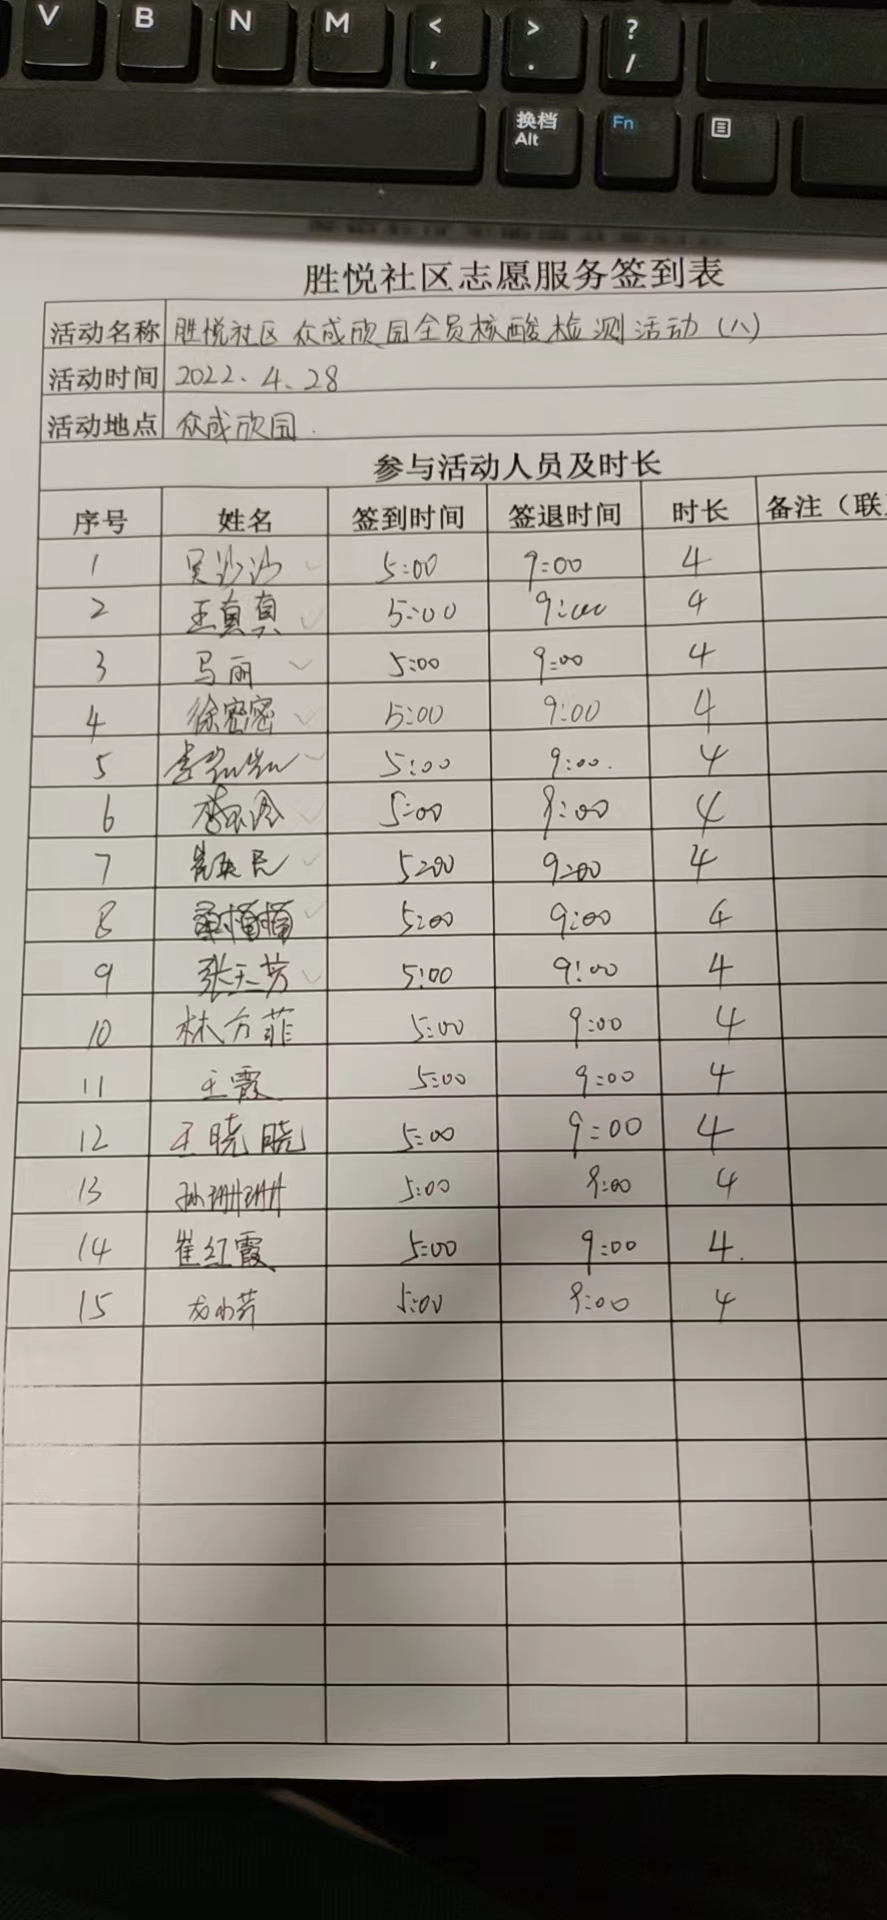 V B N M < , > . ? /
换档 Alt Fn
胜悦社区志愿服务签到表
活动名称 胜悦社区众成欣园全员核酸检测活动(八)
活动时间 2022.4.28
活动地点 众成欣园.
参与活动人员及时长
序号 姓名 签到时间 签退时间 时长 备注(联
1 吴沙沙 5:00 9:00 4
2 王真真 5:00 9:00 4
3 马丽 5:00 9:00 4
4 徐密密 5:00 9:00 4
5 5:00 9:00. 4
6 5:00 9:00 4
7 5:00 9:00 4
8 5:00 9:00 4
9 张天芳 5:00 9:00 4
10 林方菲 5:00 9:00 4
11 王霞 5:00 9:00 4
12 王晓晓 5:00 9:00 4
13 孙珊珊 5:00 9:00 4
14 崔红霞 5:00 9:00 4.
15 5:00 9:00 4